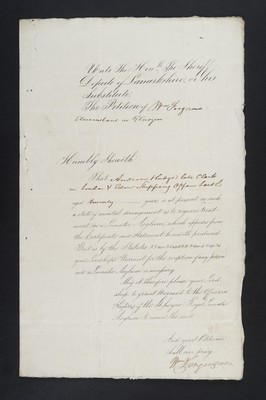 Unto The Hon.ble The Sheriff
Depute of Lanarkshire or his
Substitute.
The Petition of Wm Ferguson
in Glasgow
Humbly Sheweth
That Andrew late Clerk
in London & Shipping Office
aged twenty years, is at present in such
a state of mental derangement as to require treat-
ment in a Lunatic Asylum, which appears from
the Certificate and Statement herewith produced
That as by the Statutes
your Lordship's Warrant for the reception of any person
into a Lunatic Asylum is necessary
May it therefore please your Lord-
ship to grant Warrant to the Officers
of the Glasgow Royal Lunatic
Asylum to receive the said
And your Petitioner
shall ever pray
Wm Ferguson